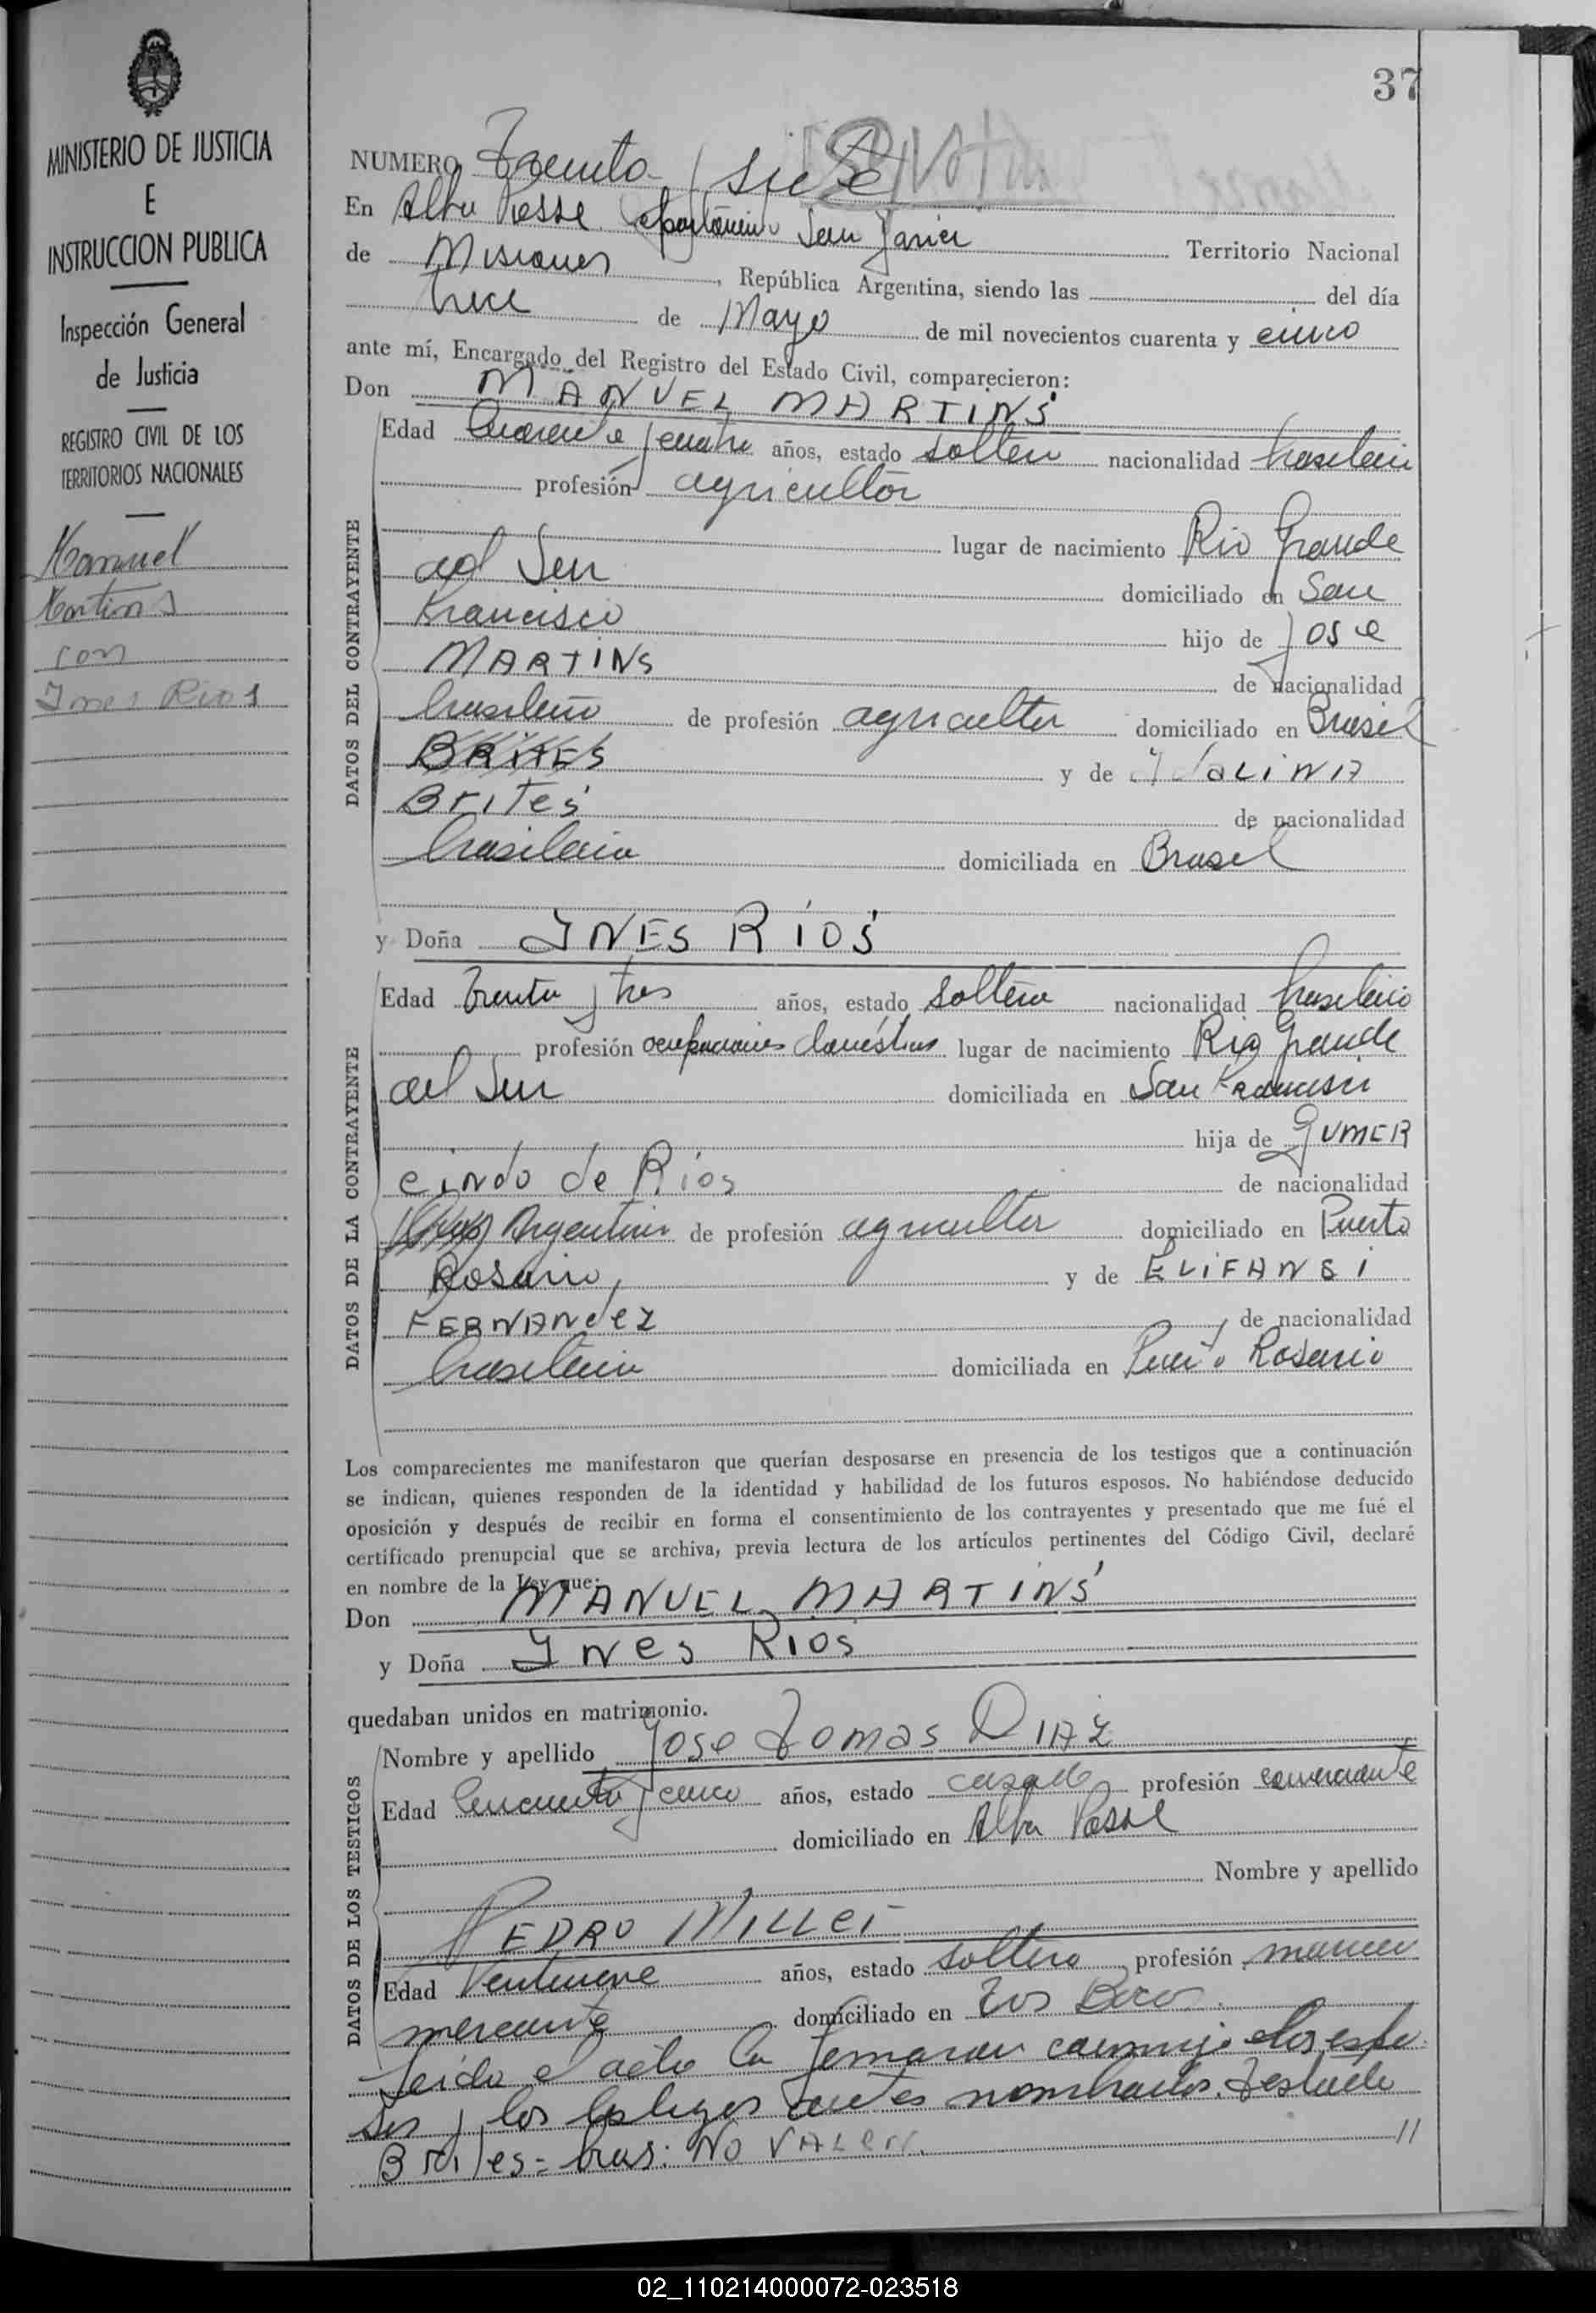 37
MINISTERIO DE JUSTICIA
E
INSTRUCCION PUBLICA
Inspección General
de Justicia
REGISTRO CIVIL DE LOS
TERRITORIOS NACIONALES
Manuel
Martins
con
Ines Rios
NUMERO Treinta y siete
En Alba Posse departamento San Javier Territorio Nacional
de Misiones, República Argentina, siendo las del día
trece de Mayo de mil novecientos cuarenta y cinco
ante mí, Encargado del Registro del Estado Civil, comparecieron:
Don MANUEL MARTINS
DATOS DEL CONTRAYENTE
Edad Cuarenta y cuatro años, estado soltero nacionalidad brasilero
profesión agricultor
lugar de nacimiento Rio Grande
del Sur domiciliado en San
Francisco hijo de Jose
MARTINS de nacionalidad
brasileño de profesión agricultor domiciliado en Brasil
BRITES y de IDALINA
Brites de nacionalidad
brasilera domiciliada en Brasil
y Doña INES RIOS
DATOS DE LA CONTRAYENTE
Edad Treinta y tres años, estado soltera nacionalidad brasilera
profesión ocupaciones domésticas lugar de nacimiento Rio Grande
del Sur domiciliada en San Francisco
hija de GUMER
cindo de Rios de nacionalidad
Argentino de profesión agricultor domiciliado en Puerto
Rosario, y de ELIFANSI
FERNANdEZ de nacionalidad
brasilera domiciliada en Puerto Rosario
Los comparecientes me manifestaron que querían desposarse en presencia de los testigos que a continuación
se indican, quienes responden de la identidad y habilidad de los futuros esposos. No habiéndose deducido
oposición y después de recibir en forma el consentimiento de los contrayentes y presentado que me fué el
certificado prenupcial que se archiva, previa lectura de los artículos pertinentes del Código Civil, declaré
en nombre de la Ley que:
Don MANUEL MARTINS
y Doña Ines Rios
quedaban unidos en matrimonio.
DATOS DE LOS TESTIGOS
Nombre y apellido Jose Tomas DIAZ
Edad Cincuenta y cinco años, estado casado profesión comerciante
domiciliado en Alba Posse
Nombre y apellido
PEDRO MILLEr
Edad Veintinueve años, estado soltero profesión marino
mercante domiciliado en Tres Bocas
Leida el acta la firmaron conmigo los espo
sos y los testigos antes nombrados. Testado
Brites= bras: No VALEN. //
02_110214000072-023518